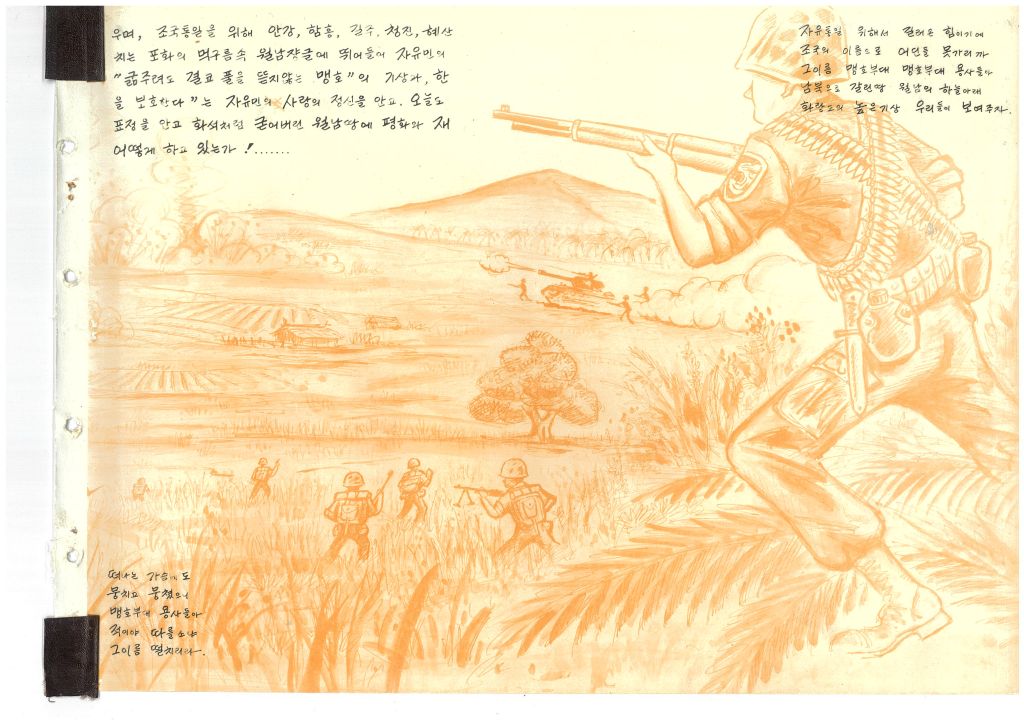 우며, 조국통일을 위해 안강, 함흥, 길주, 청진, 혜산
치는 포화의 먹구름속 월남쟝글에 뛰어들어 자유민의
"굶주려도 결코 풀을 뜯지않는 맹호"의 기상과, 한
을 보호한다"는 자유민의 사랑의 정신을 안고. 오늘도
표정을 안고 화석처럼 굳어버린 월남땅에 평화와 재
어떻게 하고 있는가 !.......
자유통일 위해서 길러온 힘이기에
조국의 이름으로 어딘들 못가리까
그이름 맹호부대 맹호부대 용사들아
남북으로 갈린땅 월남의 하늘아래
화랑도의 높은기상 우리들이 보여주자.
떠나는 가슴에도
뭉치고 뭉쳤으니
맹호부대 용사들아
적이야 따를소냐
그이름 떨치리라.